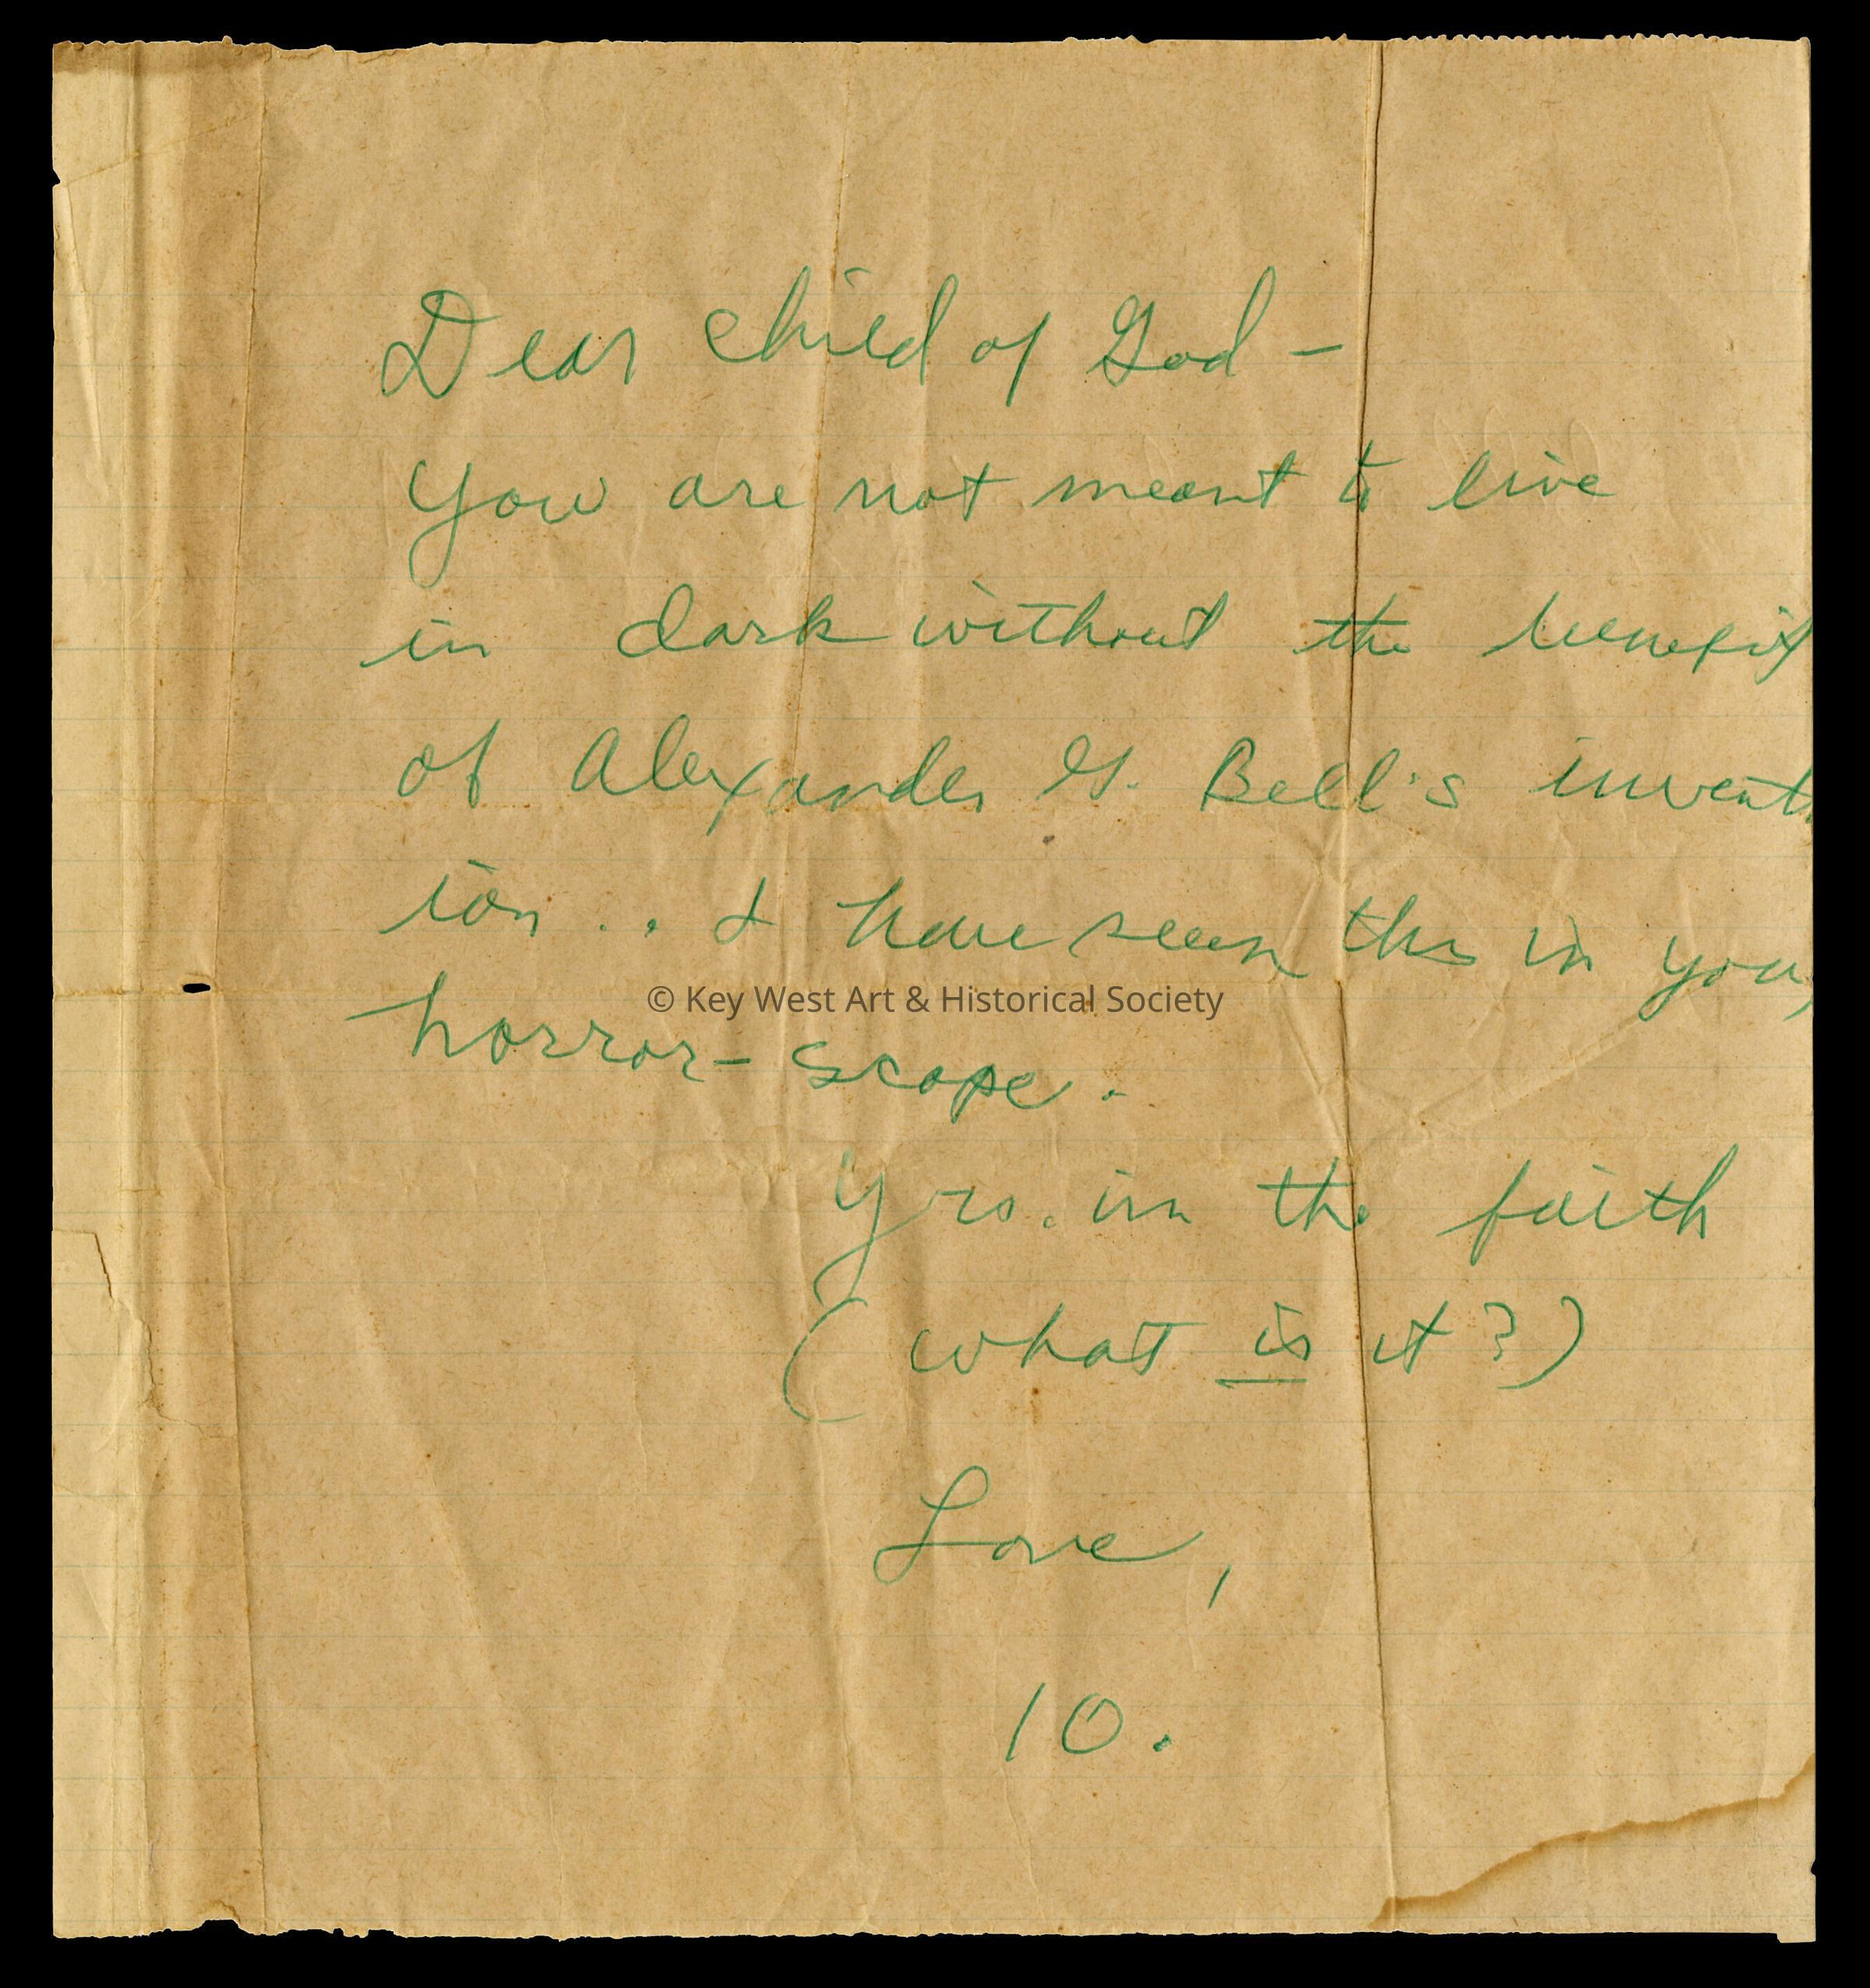 Dear Child of God –
You are not meant to live
in dark without the benefit
of Alexander G. Bell's invent
ion .. I have seen this in your
horror-scope.
© Key West Art & Historical Society
Yrs. in the faith
(what is it?)
Love,
10.